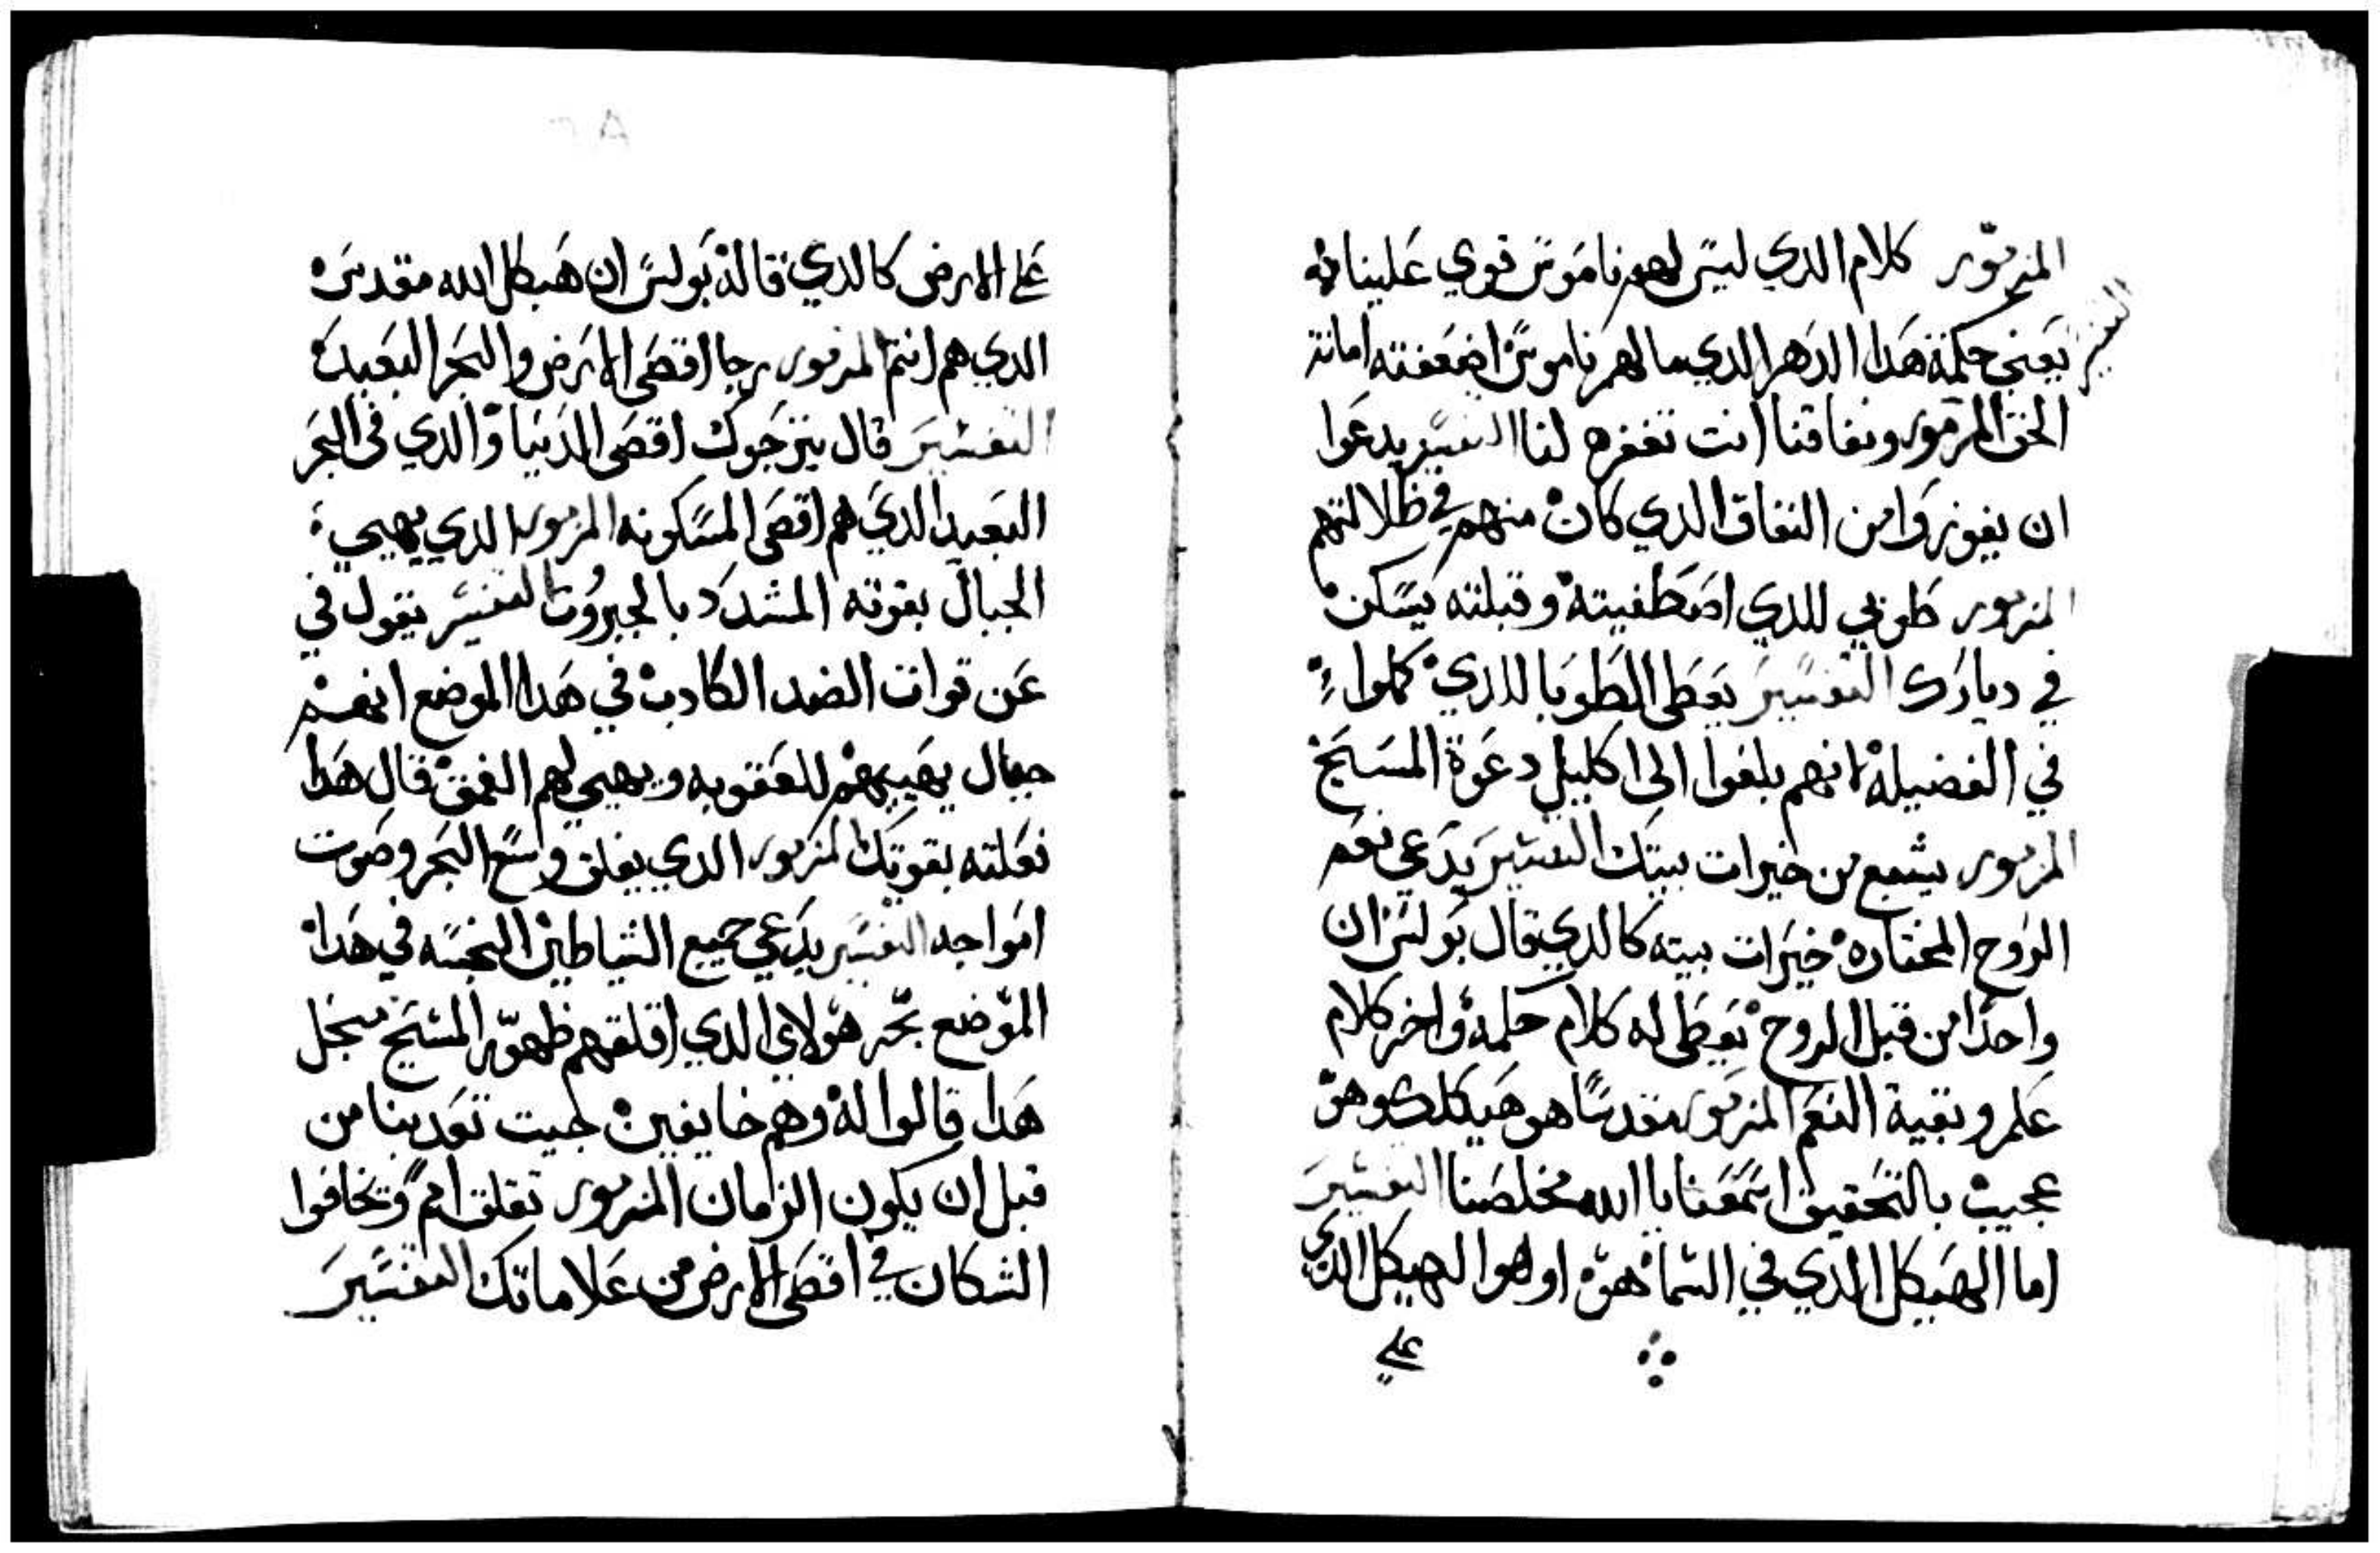 المزمور كلام الدي ليس لهم ناموس قوي علينا
التفسير
يعني حكمة هدا الدهر الدي ما لهم ناموس اضعفته امانة
الحق المزمور ونفاقنا انت تغفره لنا التفسير يدعوا
ان يفوزوا من النفاق الدي كان منهم في ظلالتهم
المزمور طوبي للدي اصطفيته وقبلته يسكن
في ديارك التفسير يعطى الطوبا للدي كملوا
في الفضيلة انهم بلغوا الى اكليل دعوة المسيح
المزمور يشبع من خيرات بيتك التفسير يدعي نعم
الروح المختاره خيرات بيته كالدي قال بولس ان
واحدا من قبل الروح يعطى له كلام حكمه واخر كلام
علم وبقية النعم المزمور مقدسا هو هيكلك وهو
عجيب بالتحقيق اسمعنا يا الله مخلصنا التفسير
اما الهيكل الدي في السما فهو اوهوا الهيكل الدي
علي
على الارض كالدي قاله بولس ان هيكل الله مقدس
الدي هم انتم المزمور رجا اقصى الارض والبحر البعيد
التفسير قال يترجوك اقصى الدنيا والدي في البحر
البعيد الدي هم اقصى المسكونه المزمور الدي يهيي
الجبال بقوته المشدد بالجبروت التفسير يقول في
عن قوات الضد الكادب في هدا الموضع انهم
جبال يهييهم للعقوبه ويهيي لهم الغمق قال هدا
نعلته بقوتك المزمور الدي يغلق واسع البحر وصوت
امواجه التفسير يدعي جميع الشياطين النجسه في هدا
الموضع بحر هولاي الدي اقلقهم ظهور المسيح منجل
هدا قالوا له وهم خايفين جيت تعدبنا من
قبل ان يكون الزمان المزمور تقلق امم وتخافوا
السكان في اقصى الارض من علاماتك التفسير